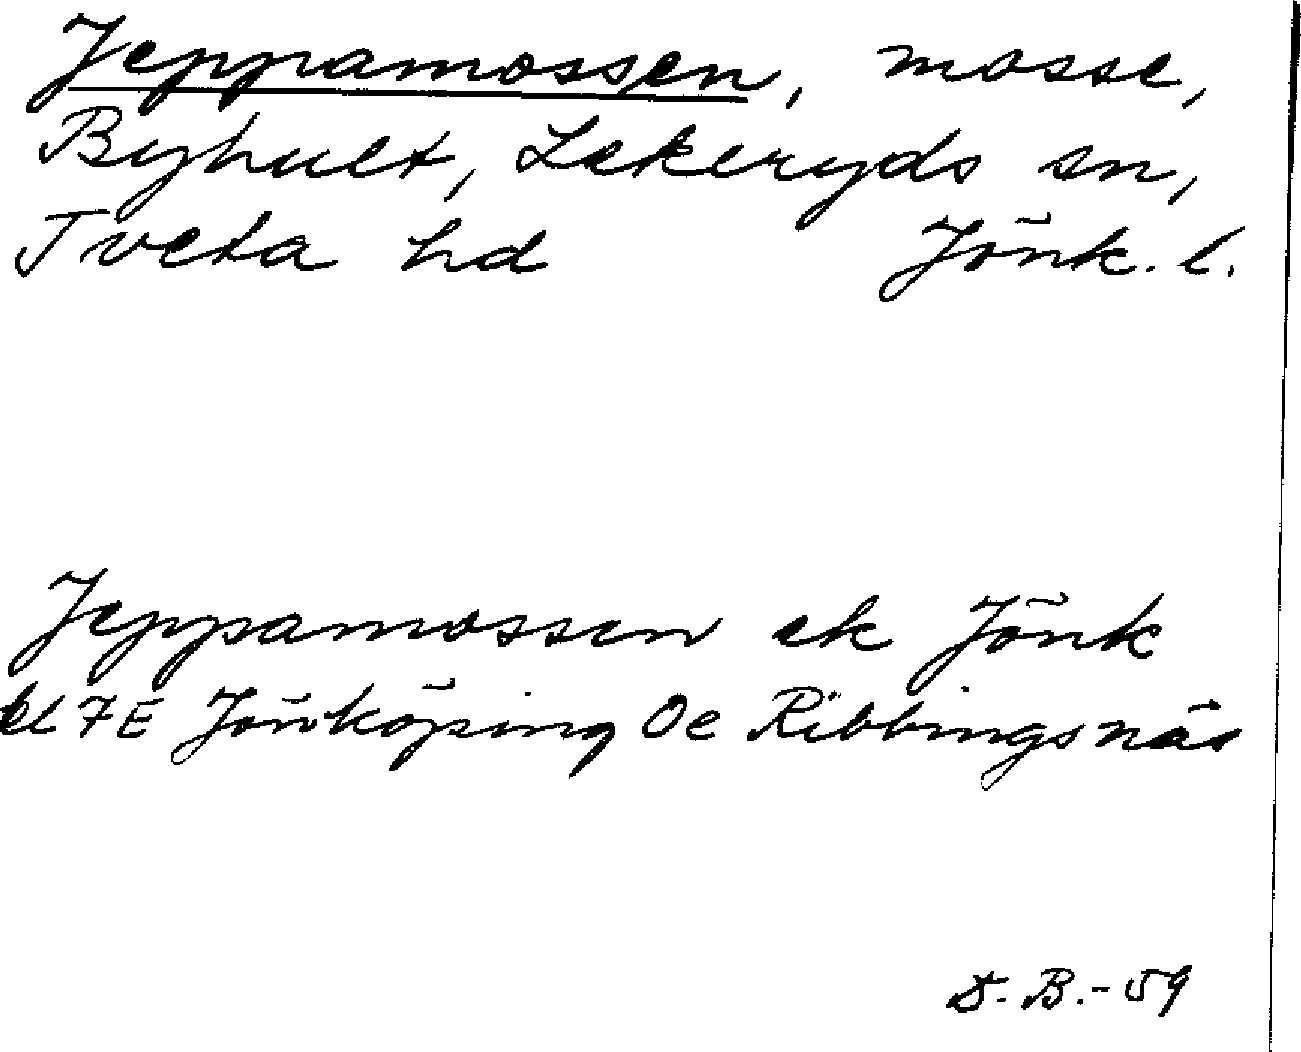 Jeppamossen, mosse,
Byhult, Lekeryds sn,
Tveta hd Jönk. l.
Jeppamossen ek Jönk
bl 7E Jönköping Oe Ribbingsnäs
D. B. - 59